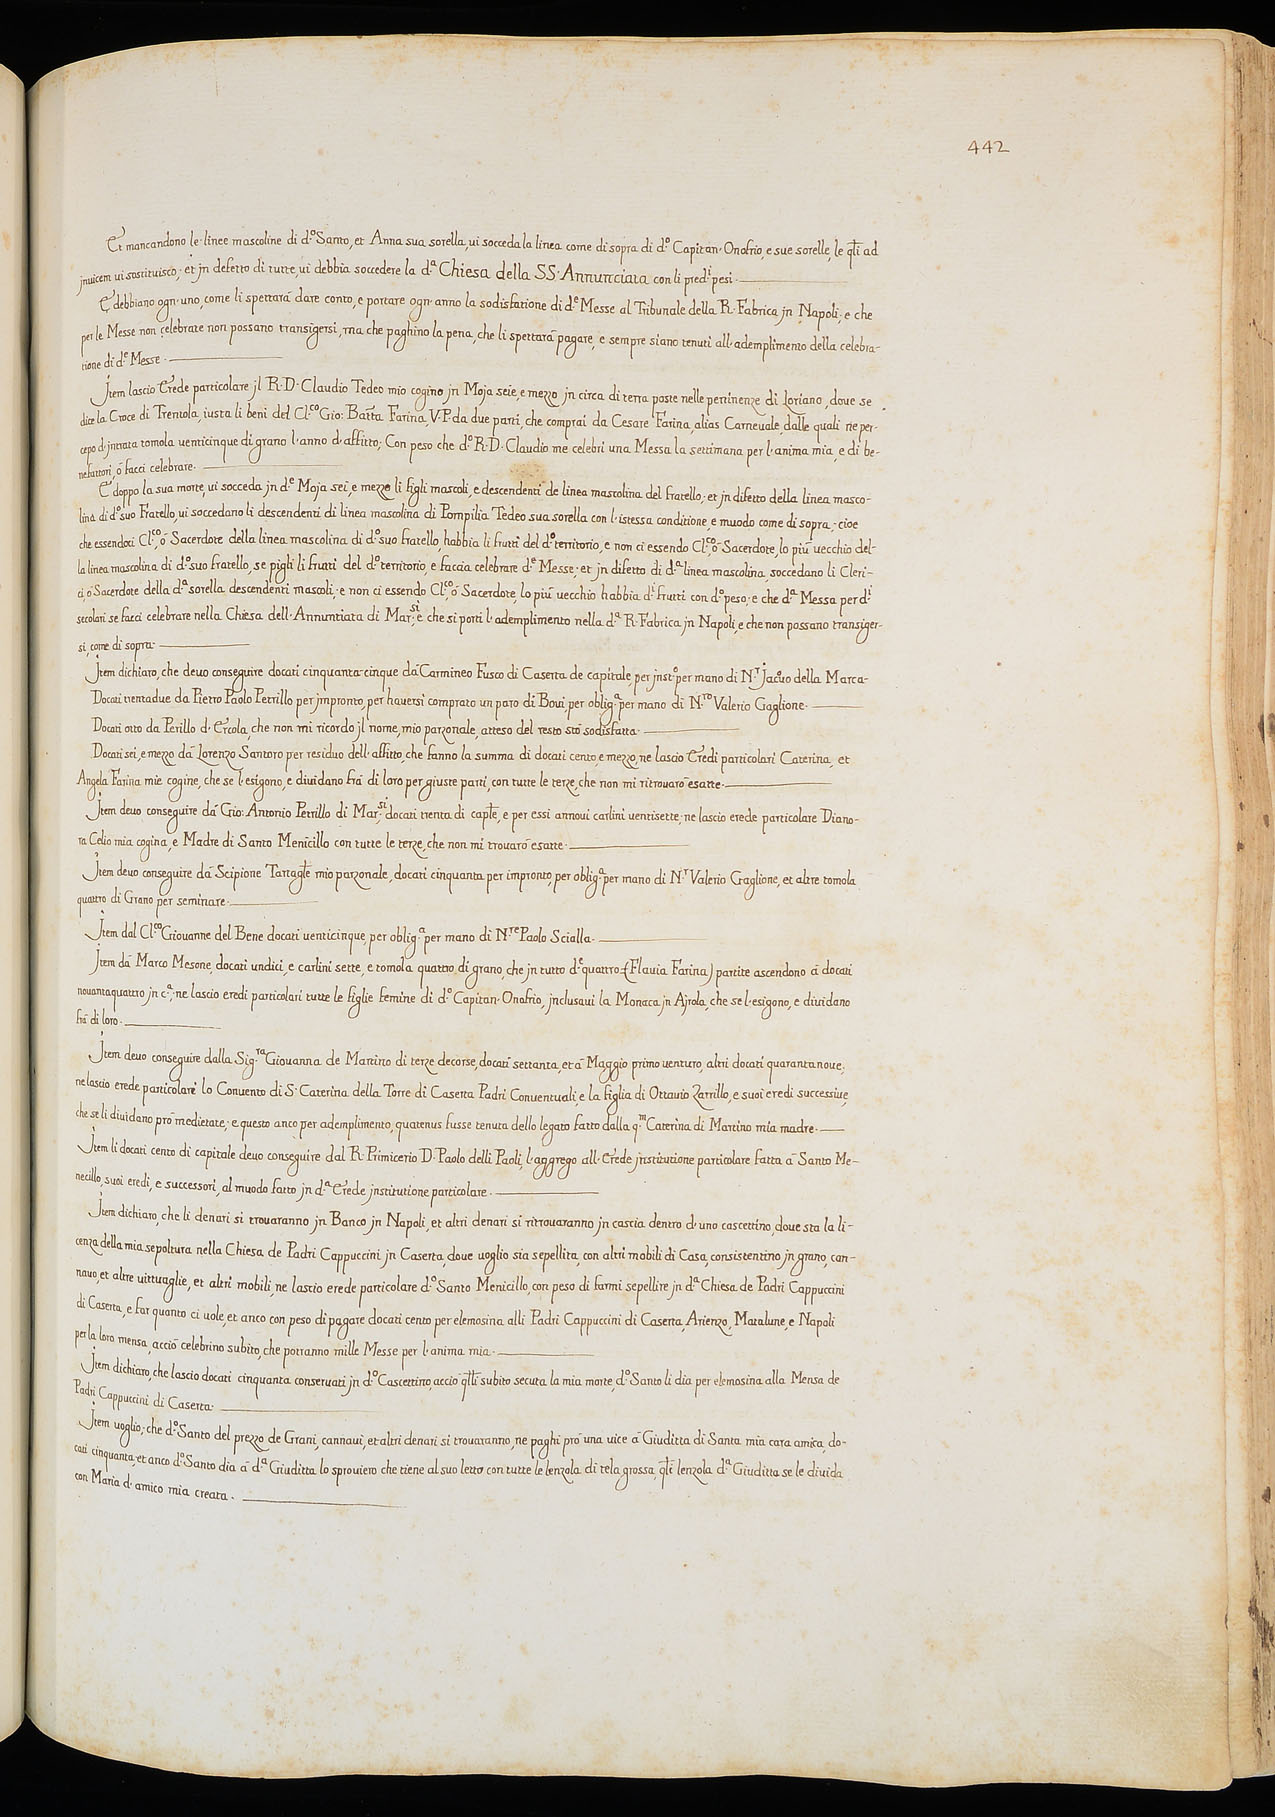 442
Et mancandono le linee mascoline di d.º Santo, et Anna sua sorella, ui socceda la linea come di sopra di d.º Capitan Onofrio, e sue sorelle, le q̃li ad
jnuicem ui sostituisco; et jn defetto di tutte, ui debbia soccedere la d.ª Chiesa della SS. Annunciata con li pred.ⁱ pesi.
E debbiano ogn'uno, come li spettarà dare conto, e portare ogn'anno la sodisfatione di d.ᵉ Messe al Tribunale della R. Fabrica jn Napoli; e che
per le Messe non celebrate non possano transigersi, ma che paghino la pena, che li spettarà pagare, e sempre siano tenuti all'adempimento della celebra-
tione di d.ᵉ Messe.
Jtem lascio Erede particolare jl R. D. Claudio Tedeo mio cogino jn Moja seie, e mezzo jn circa di terra poste nelle pertinenze di Loriano, doue se
dice la Croce di Trentola, iusta li beni del Cl.ᶜᵒ Gio: Batt̃a Farina, V. P. da due parti, che comprai da Cesare Farina, alias Carneuale, dalle quali ne per-
cepo d'jntrata tomola uenticinque di grano l'anno d'affitto; Con peso che d.º R. D. Claudio me celebri una Messa la settimana per l'anima mia, e di be-
nefattori, ò facci celebrare.
E doppo la sua morte, ui socceda jn d.ᵉ Moja sei, e mezze li figli mascoli, e descendenti de linea mascolina del fratello; et jn difetto della linea masco-
lina di d.º suo Fratello, ui soccedano li descendenti di linea mascolina di Pompilia Tedeo sua sorella con l'istessa conditione, e muodo come di sopra; cioe
che essendoci Cl.ᶜᵒ, ò Sacerdote della linea mascolina di d.º suo fratello, habbia li frutti del d.º territorio, e non ci essendo Cl.ᶜᵒ ò Sacerdote, lo più uecchio del-
la linea mascolina di d.º suo fratello, se pigli li frutti del d.º territorio, e faccia celebrare d.ᵉ Messe; et jn difetto di d.ª linea mascolina, soccedano li Cleri-
ci, ò Sacerdote della d.ª sorella descendenti mascoli; e non ci essendo Cl.ᶜᵒ, ò Sacerdote, lo più uecchio habbia d.ⁱ frutti con d.º peso; e che d.ª Messa per d.ⁱ
secolari se facci celebrare nella Chiesa dell'Annuntiata di Mar.ˢⁱ; è che si porti l'adempimento nella d.ª R. Fabrica jn Napoli, e che non possano transiger-
si, come di sopra.
Jtem dichiaro, che deuo conseguire docati cinquanta cinque da Carmineo Fusco di Caserta de capitale, per jnst.º per mano di N.ʳ Jacouo della Marca.
Docati trentadue da Pietro Paolo Petrillo per jmpronto, per hauersi comprato un paro di Boui, per oblig.ª per mano di N.ʳᵒ Valerio Gaglione.
Docati otto da Perillo d'Ercola, che non mi ricordo jl nome, mio parzonale, atteso del resto stò sodisfatta.
Docati sei, e mezzo dà Lorenzo Santoro per residuo dell'affitto, che fanno la summa di docati cento, e mezzo, ne lascio Eredi particolari Caterina, et
Angela Farina mie cogine, che se l'esigono, e diuidano frà di loro per giuste parti, con tutte le terze, che non mi ritrouarò esatte.
Jtem deuo conseguire dà Gio: Antonio Petrillo di Mar.ˢⁱ, docati trenta di cap̃le, e per essi annoui carlini uentisette; ne lascio erede particolare Diano-
ra Celio mia cogina, e Madre di Santo Menicillo con tutte le terze, che non mi trouarò esatte.
Jtem deuo conseguire dà Scipione Tartagl̃e mio parzonale, docati cinquanta per impronto, per oblig.ª per mano di N.ʳ Valerio Gaglione, et altre tomola
quattro di Grano per seminare.
Jtem dal Cl.ᶜᵒ Giouanne del Bene docati uenticinque, per oblig.ª per mano di N.ʳᵉ Paolo Scialla.
Jtem dà Marco Mesone, docati undici, e carlini sette, e tomola quattro di grano, che jn tutto d.ᵉ quattro (Flauia Farina) partite ascendono à docati
nouantaquattro jn c.ª; ne lascio eredi particolari tutte le figlie femine di d.º Capitan Onofrio, jnclusaui la Monaca jn Ajrola, che se l'esigono, e diuidano
frà di loro.
Jtem deuo conseguire dalla Sig.ʳᵃ Giouanna de Martino di terze decorse, docati settanta, et à Maggio primo uenturo, altri docati quarantanoue;
ne lascio erede particolare lo Conuento di S. Caterina della Torre di Caserta Padri Conuentuali, e la figlia di Ottauio Zarrillo, e suoi eredi successiue,
che se li diuidano prò medietate; e questo anco per adempimento, quatenus fusse tenuta dello legato fatto dalla q.ᵐ Caterina di Martino mia madre.
Jtem li docati cento di capitale deuo conseguire dal R. Primicerio D. Paolo delli Paoli, l'aggrego all'Erede jnstitutione particolare fatta à Santo Me-
necillo, suoi eredi, e successori, al muodo fatto jn d.ª Erede jnstitutione particolare.
Jtem dichiaro, che li denari si trouaranno jn Banco jn Napoli, et altri denari si ritrouaranno jn cascia dentro d'uno cascettino, doue sta la li-
cenza della mia sepoltura nella Chiesa de Padri Cappuccini jn Caserta, doue uoglio sia sepellita, con altri mobili di Casa, consistentino jn grano, can-
nauo, et altre uittuaglie, et altri mobili, ne lascio erede particolare d.º Santo Menicillo, con peso di farmi sepellire jn d.ª Chiesa de Padri Cappuccini
di Caserta, e far quanto ci uole, et anco con peso di pagare docati cento per elemosina alli Padri Cappuccini di Caserta, Arienzo, Matalune, e Napoli
per la loro mensa, acciò celebrino subito, che potranno mille Messe per l'anima mia.
Jtem dichiaro, che lascio docati cinquanta conseruati jn d.º Cascettino, acciò q̃lli subito secuta la mia morte, d.º Santo li dia per elemosina alla Mensa de
Padri Cappuccini di Caserta.
Jtem uoglio; che d.º Santo del prezzo de Grani, cannaui, et altri denari si trouaranno, ne paghi prò una uice à Giuditta di Santa mia cara amica, do-
cati cinquanta, et anco d.º Santo dia à d.ª Giuditta lo sprouiero che tiene al suo letto con tutte le lenzola di tela grossa, q̃li lenzola d.ª Giuditta se le diuida
con Maria d'amico mia creata.